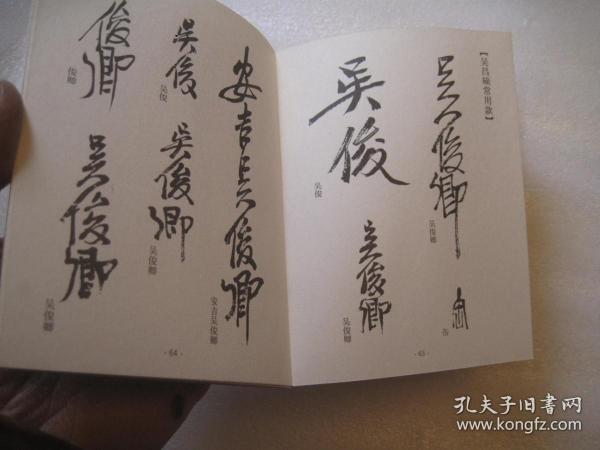 【吴昌碩常用款】
吴俊卿
吴俊卿
缶
缶
吴俊
吴俊
吴俊卿
吴俊卿
·63·
安吉吴俊卿
安吉吴俊卿
吴俊
吴俊
吴俊卿
吴俊卿
俊卿
俊卿
吴俊卿
吴俊卿
·64·
孔夫子旧书网
www.kongfz.com